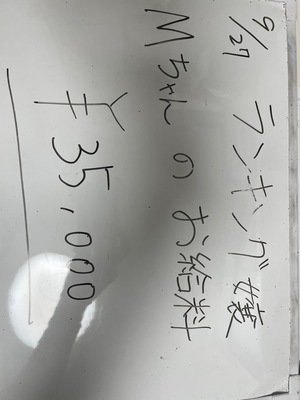 9/27 ランキング嬢
Mちゃん の お給料
¥35,000